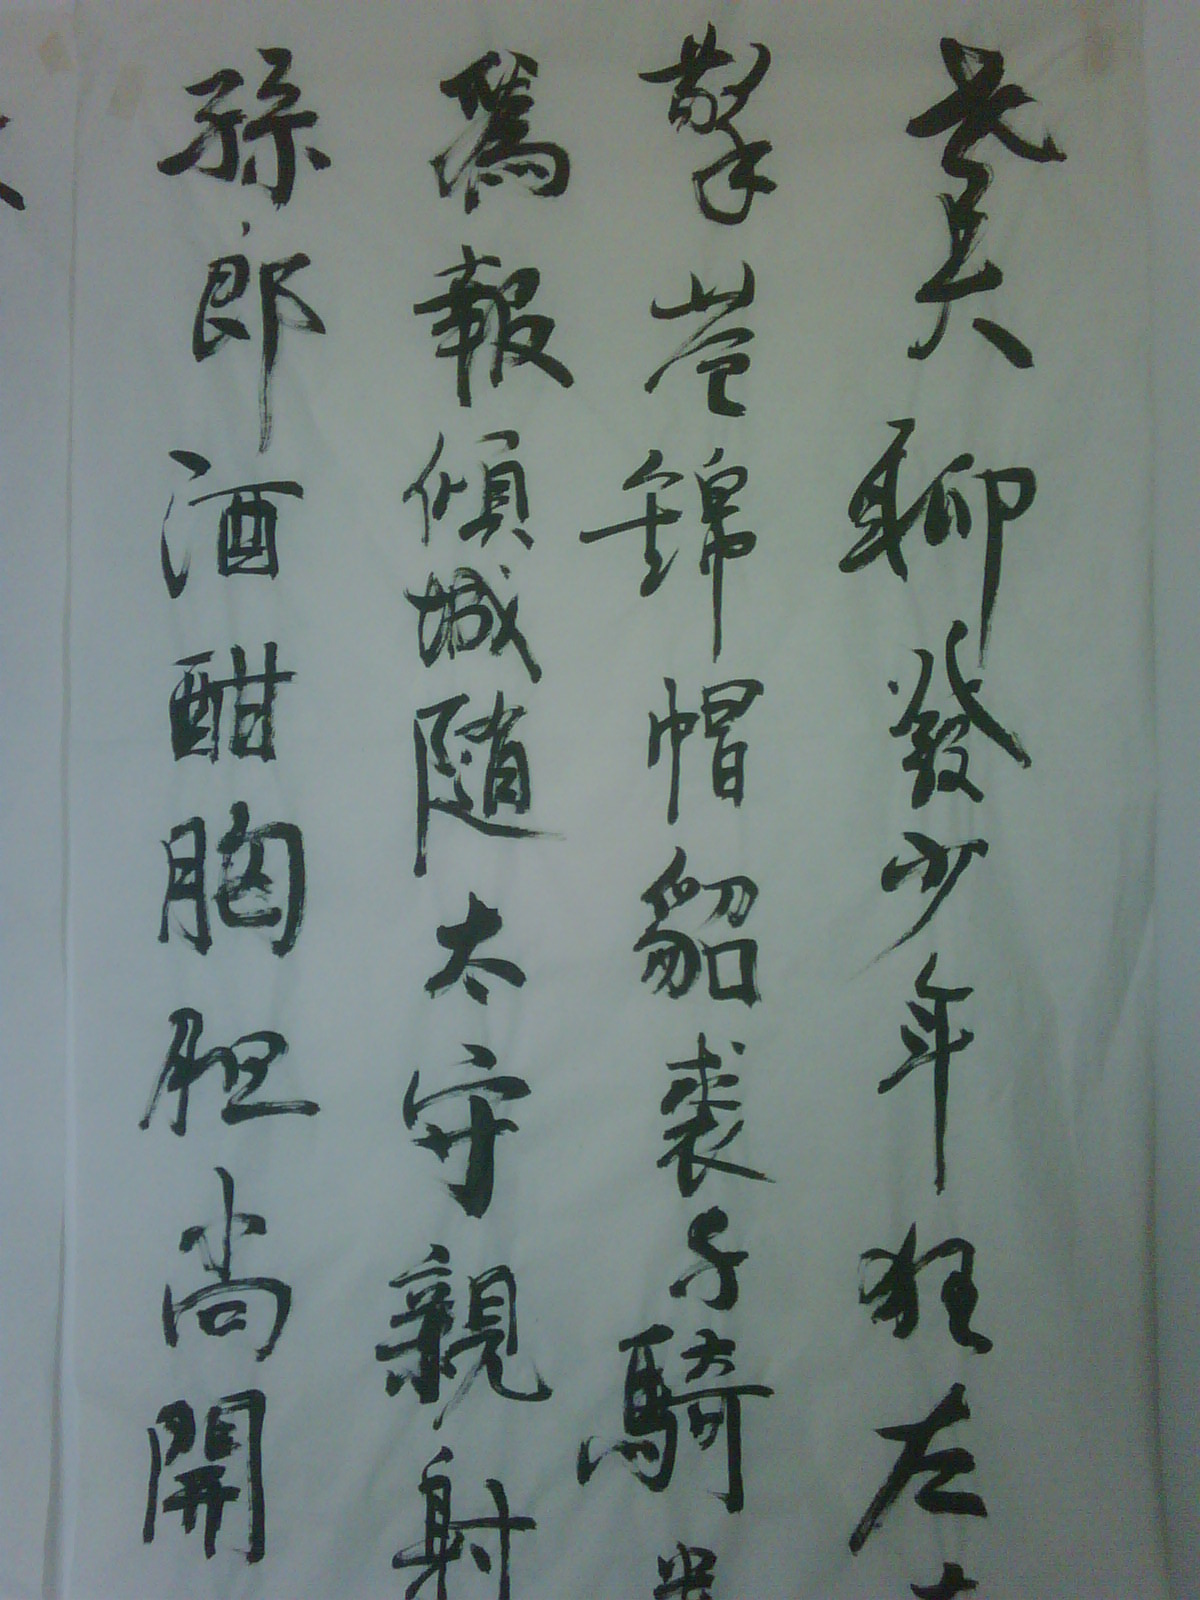 老夫聊發少年狂左
擎蒼錦帽貂裘千騎
爲報傾城隨太守親射
孫郎酒酣胸胆尚開